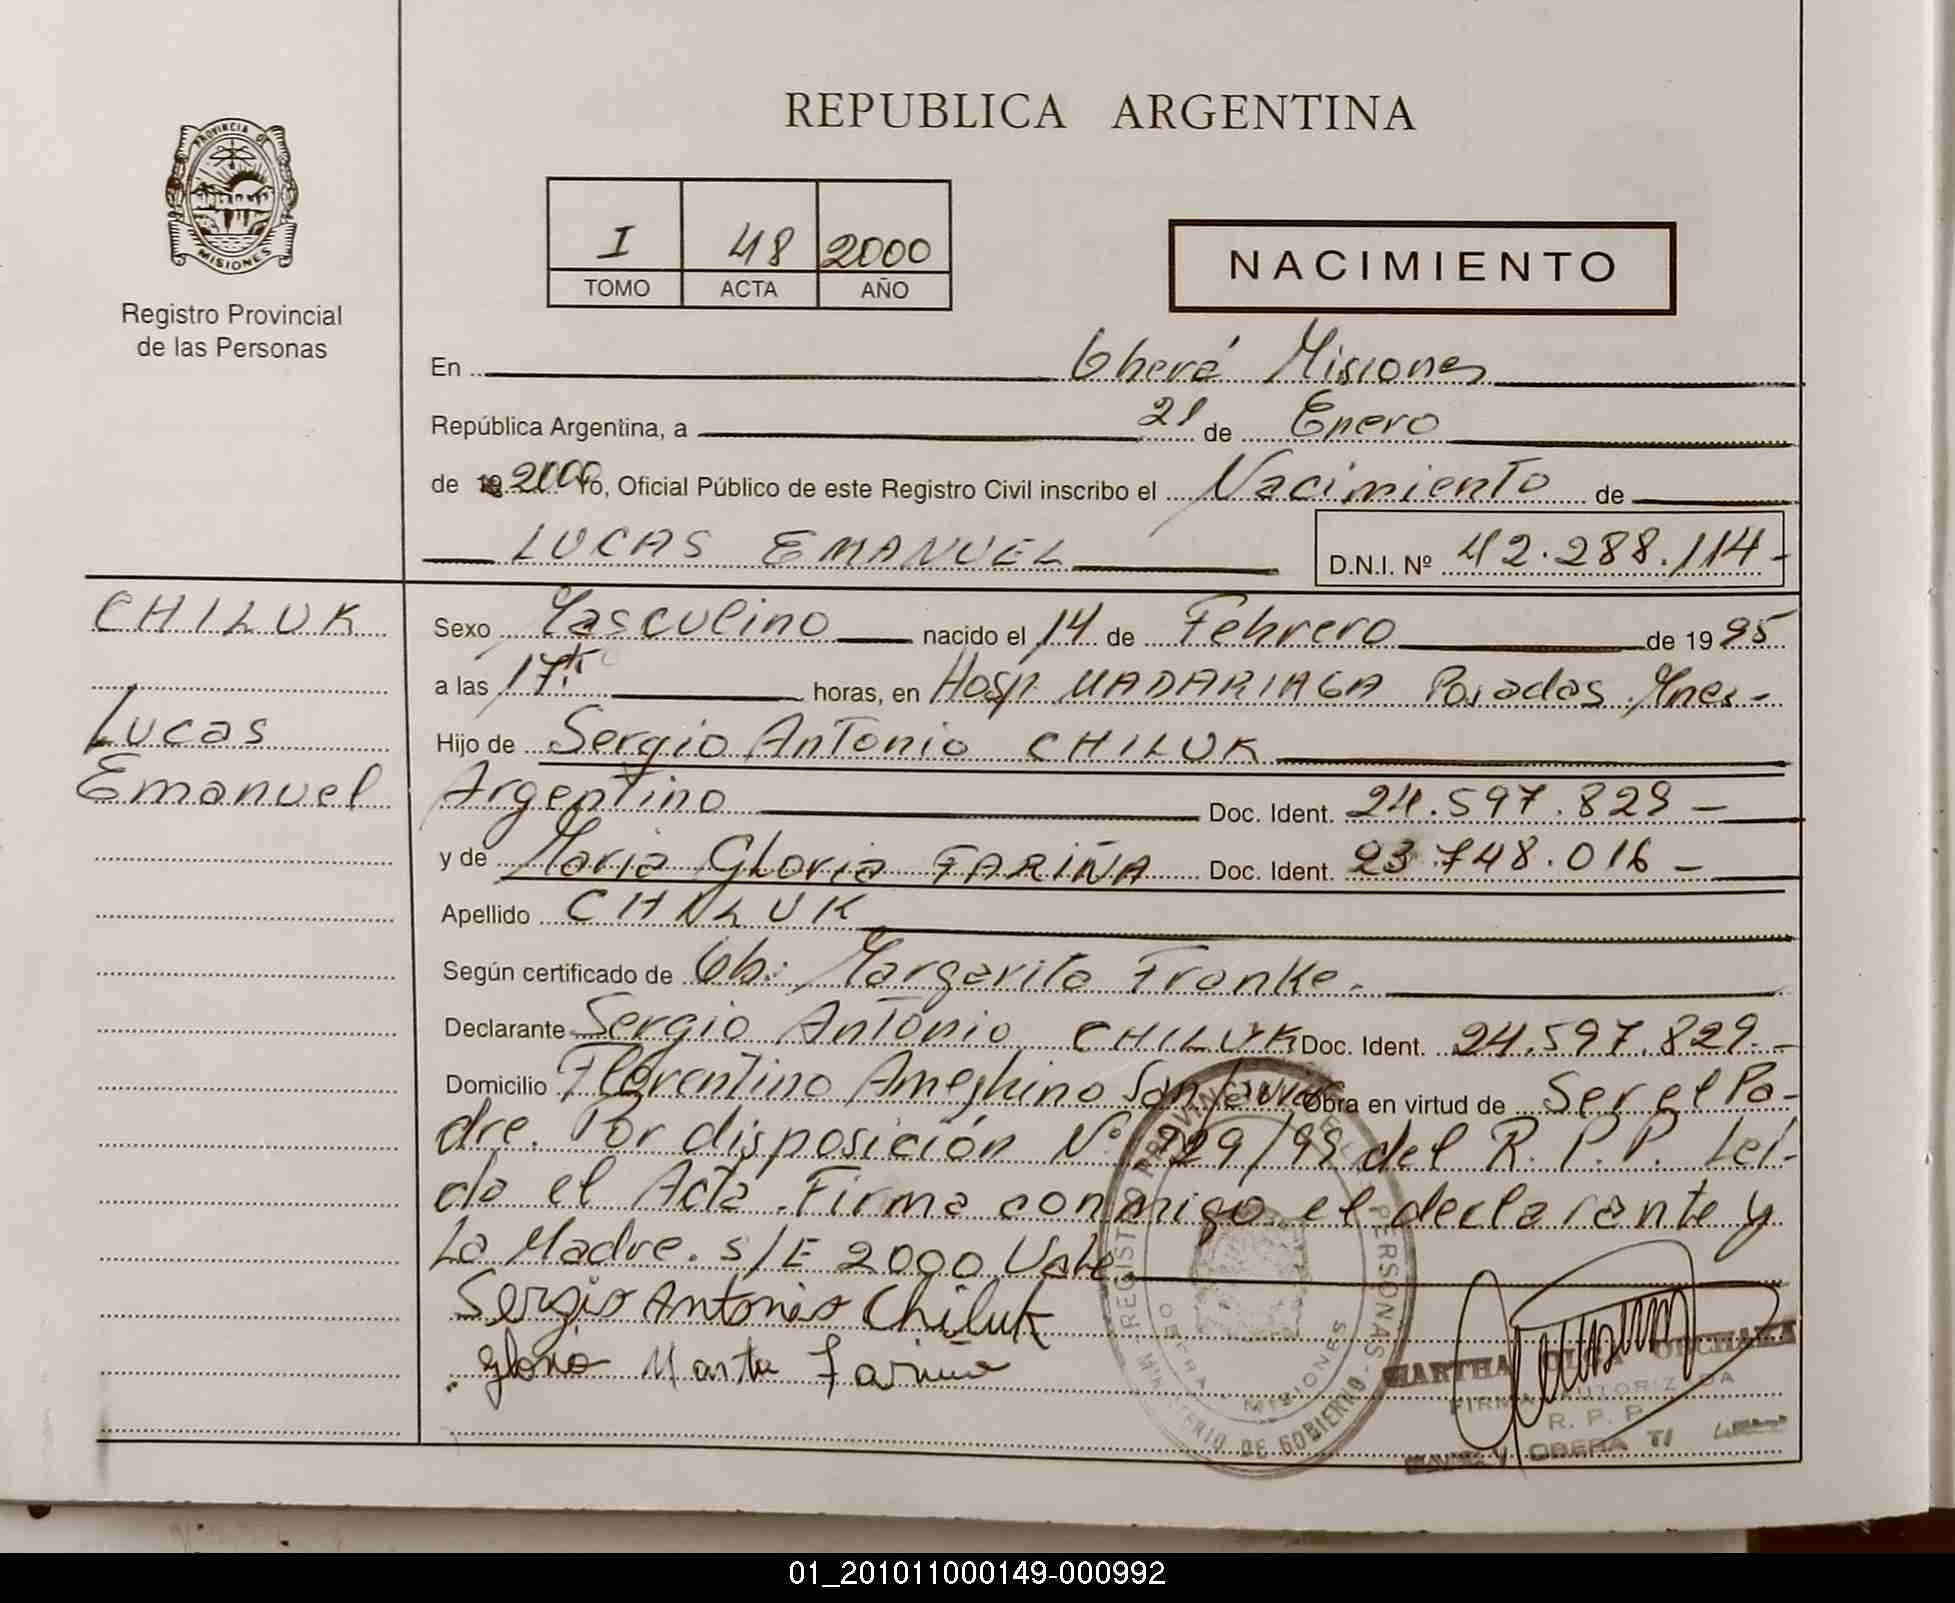 REPUBLICA ARGENTINA
PROVINCIA DE
MISIONES
Registro Provincial
de las Personas
I 48 2000
TOMO ACTA AÑO
NACIMIENTO
En Oberá Misiones
República Argentina, a 21 de Enero
de 19 2000 Yo, Oficial Público de este Registro Civil inscribo el Nacimiento de
LUCAS EMANUEL D.N.I. Nº 42.288.114-
CHILUK
Lucas
Emanuel
Sexo Masculino nacido el 14 de Febrero de 19 95
a las 17 horas, en Hosp. MADARIAGA Posadas Mnes-
Hijo de Sergio Antonio CHILUK
Argentino Doc. Ident. 24.597.829-
y de Maria Gloria FARIÑA Doc. Ident. 23.748.016-
Apellido CHILUK
Según certificado de Ob: Margarita Franke.
Declarante Sergio Antonio CHILUK Doc. Ident. 24.597.829.-
Domicilio Florentino Ameghino San Javier Obra en virtud de Ser el Pa-
dre. Por disposición Nº 229/99 del R.P.P. Leí-
da el Acta. Firma conmigo el declarante y
La Madre. S/E 2000 Vale
Sergio Antonio Chiluk
Gloria Marta Fariña
REGISTRO PROVINCIAL PERSONAS - MINISTERIO DE GOBIERNO
OBERA - MISIONES
MARTHA
FIRMA AUTORIZADA
R. P. P.
OBERA
01_201011000149-000992